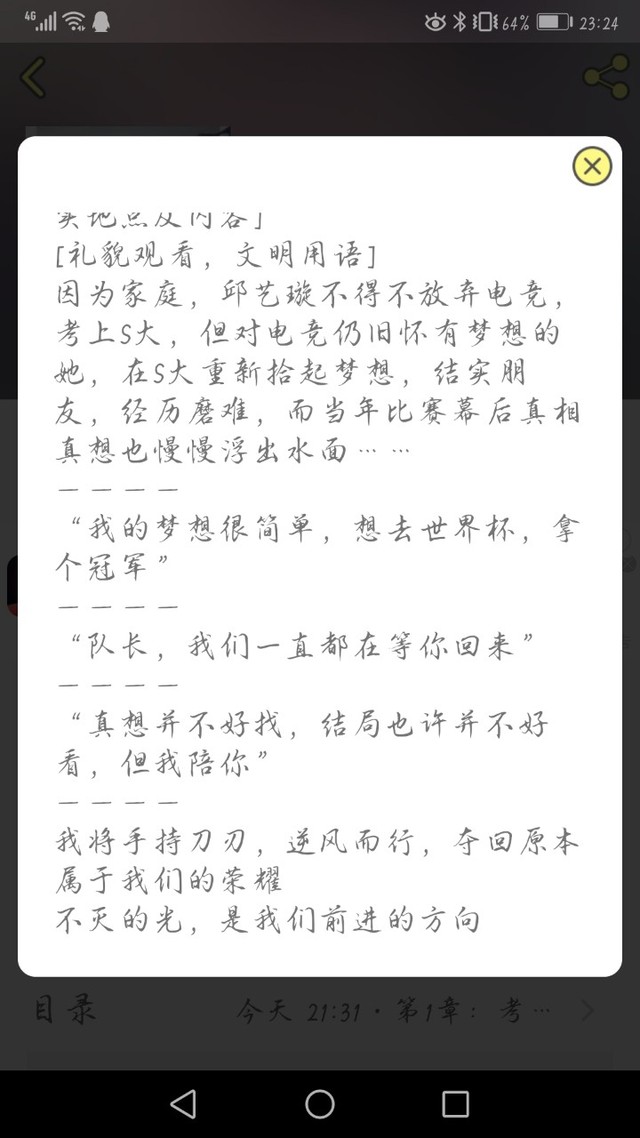 4G 64% 23:24
实地点及内容」
[礼貌观看，文明用语]
因为家庭，邱艺璇不得不放弃电竞，
考上S大，但对电竞仍旧怀有梦想的
她，在S大重新拾起梦想，结实朋
友，经历磨难，而当年比赛幕后真相
真想也慢慢浮出水面……
————
“我的梦想很简单，想去世界杯，拿
个冠军”
————
“队长，我们一直都在等你回来”
————
“真想并不好找，结局也许并不好
看，但我陪你”
————
我将手持刀刃，逆风而行，夺回原本
属于我们的荣耀
不灭的光，是我们前进的方向
目录 今天 21:31·第1章：考…